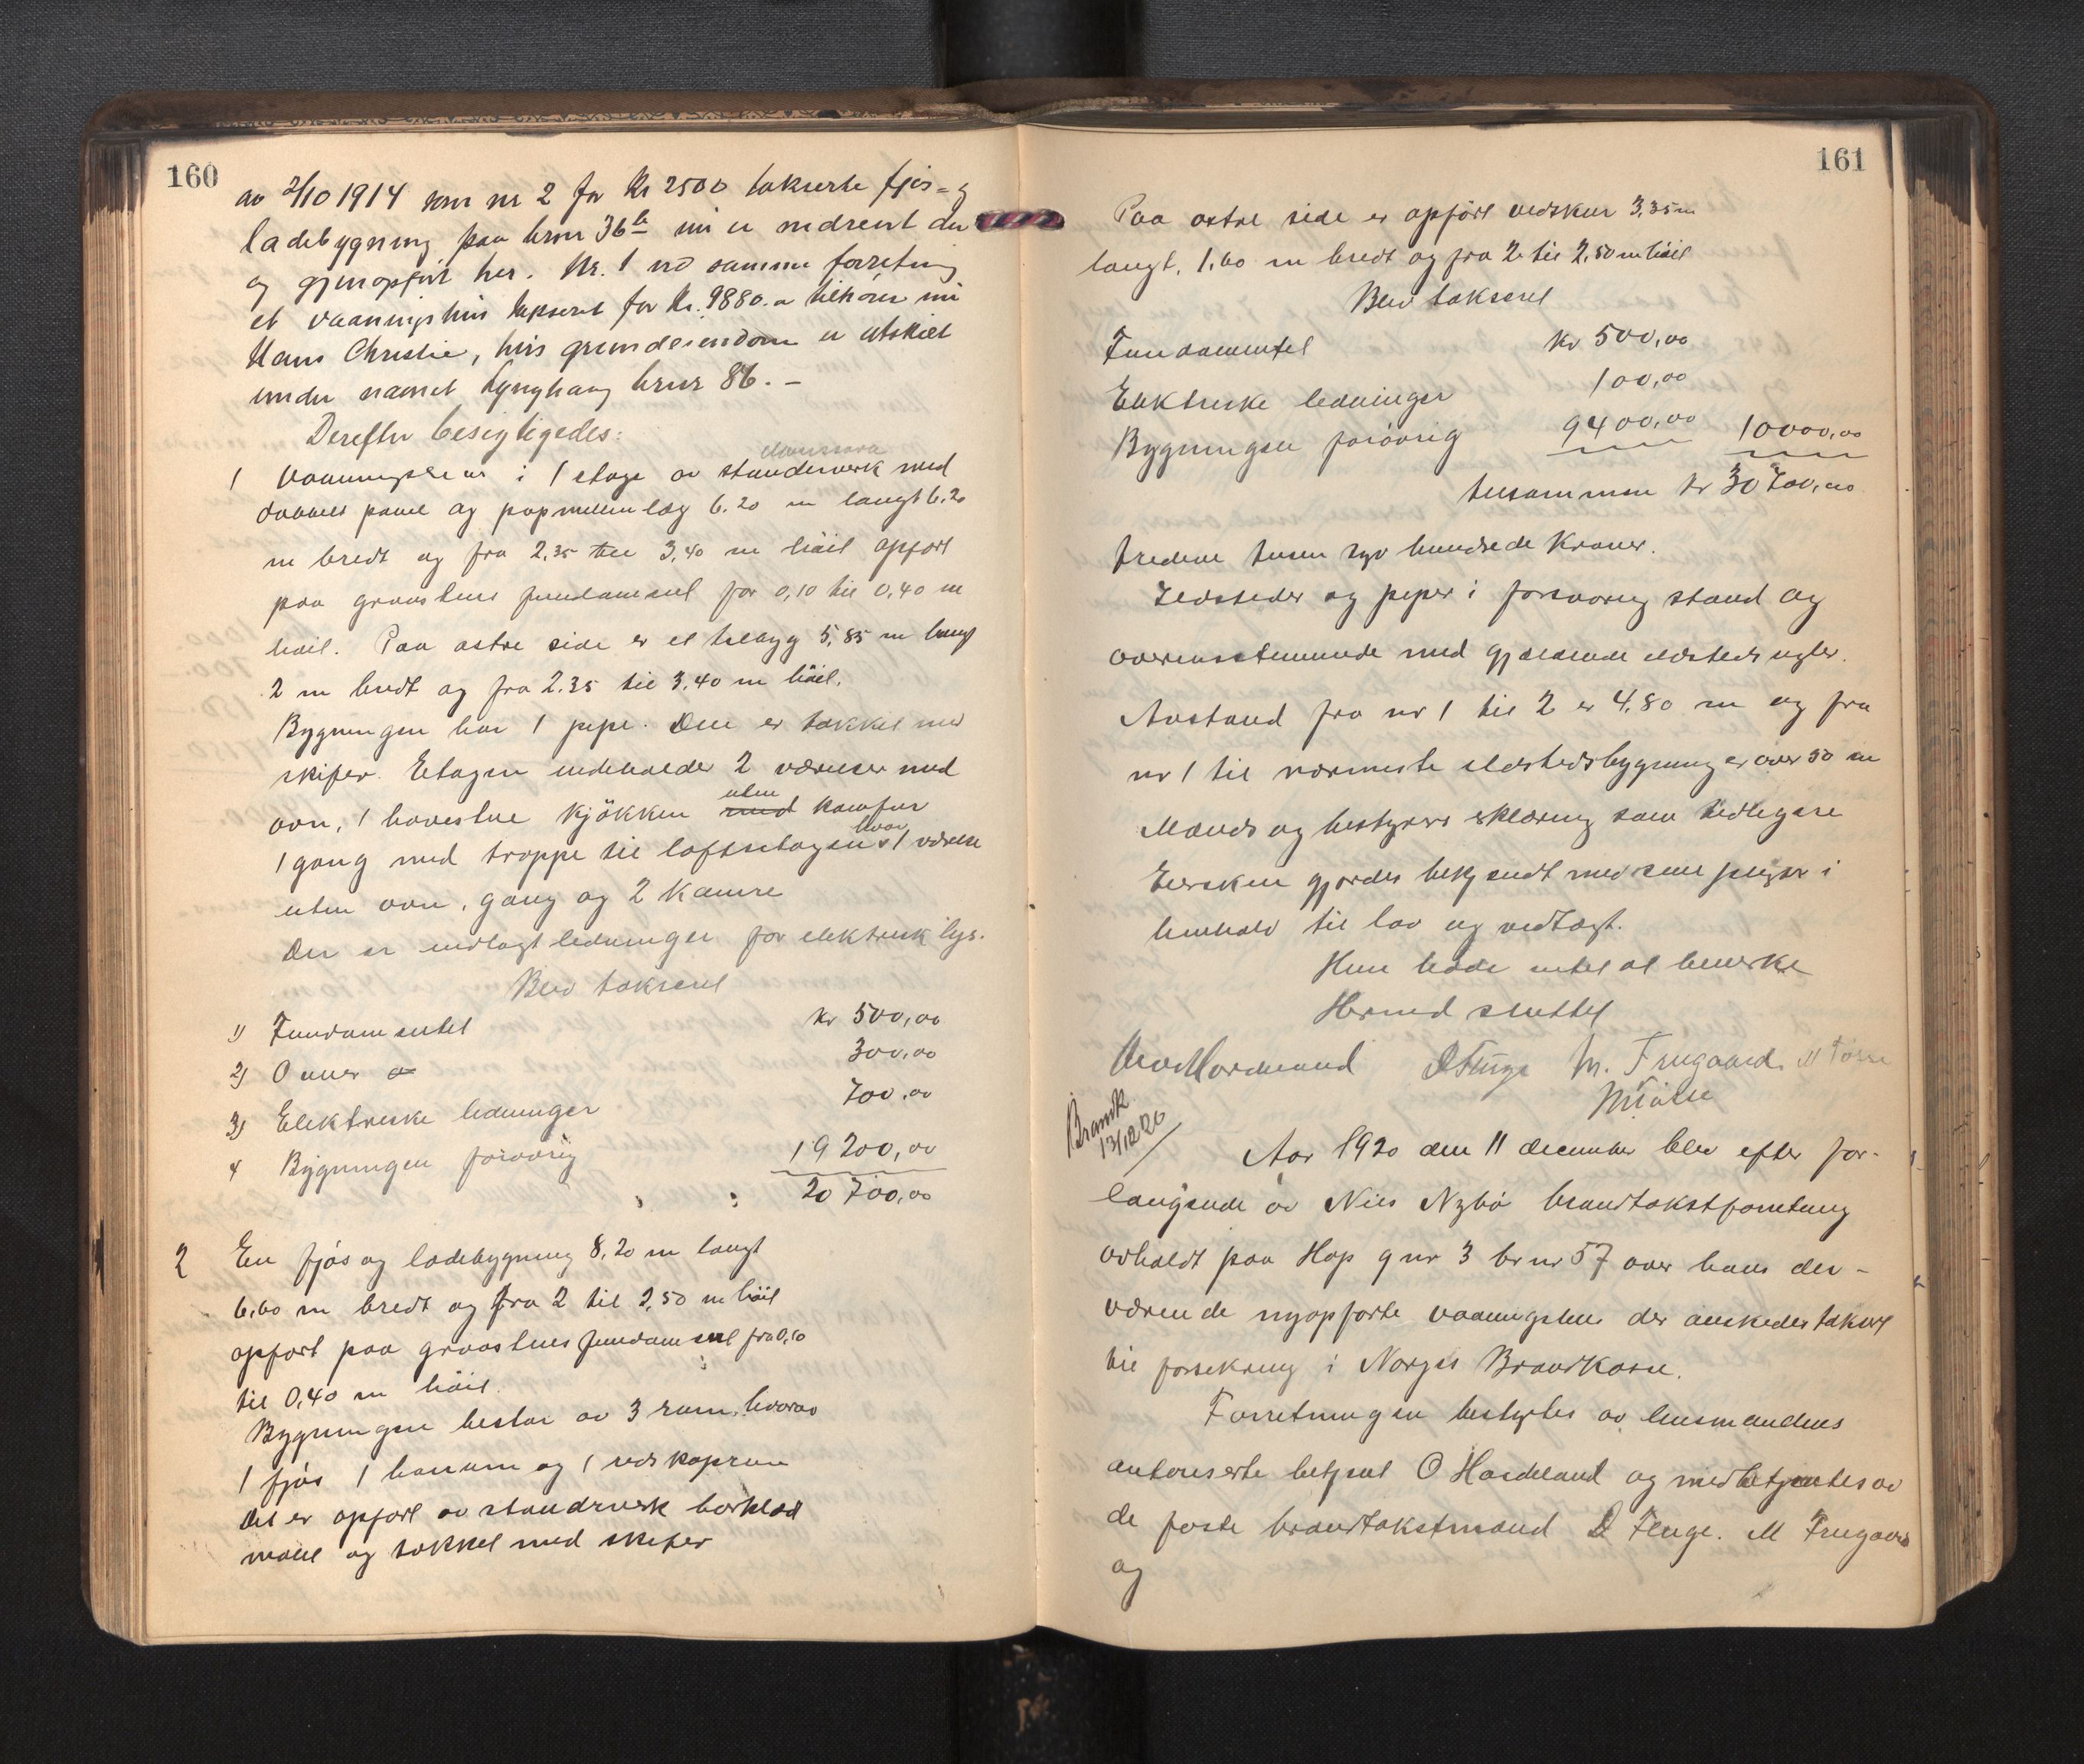 160
av 2/10 1914 som nr 2 for Kr 2500 takserte fjøs- og
ladebygning paa brnr 36 nu er nedrevet der
og gjenopført her. Nr. 1 ved samme forretning
et vaaningshus taksert for Kr. 9880.- tilhører nu
Hans Christie, hvis grundeiendom er utskilt
under navnet Lynghaug brnr 86. -
Derefter besigtigedes:
1 Vaaningshus i 1 etage av standerverk med
dobbelt panel og papmellemlæg 6.20 m langt 6.20
m bredt og fra 2.35 til 3,40 m høit opført
paa graastens fundament for 0,10 til 0,40 m
høit. Paa østre side er et tilbygg 5,85 m langt
2 m bredt og fra 2.35 til 3.40 m høit.
Bygningen har 1 pipe. Den er tækket med
skifer. Etagen indeholder 2 værelser med
ovn, 1 bovestue kjøkken med uten komfur
1 gang med trappe til loftsetagen hvor 1 værelse
uten ovn, gang og 2 kamre
Der er indlagt ledninger for elektrisk lys.
Blev taksert
1) Fundamentet kr 500,00
2) Ovner 300,00
3) Elektriske ledninger 700,00
4 Bygningen forøvrig 19200,00
20700,00
2 En fjøs og ladebygning 8,20 m langt
6,60 m bredt og fra 2 til 2,50 m høit
opført paa graastens fundament fra 0,10
til 0,40 m høit.
Bygningen bestaar av 3 rum, hvorav
1 fjøs 1 høirum og 1 redskapsrum
Det er opført av standerverk bordklædd
malt og tækket med skifer
161
Paa østre side er opført vedskur 3,35 m
langt, 1.60 m bredt og fra 2 til 2,50 m høit
Blev taksert
Fundamentet kr 500,00
Elektriske ledninger 100,00
Bygningen forøvrig 9400,00 10000,00
tilsammen kr 30700,00
tredive tusen syv hundrede Kroner.
Ildsteder og piper i forsvarlig stand og
overensstemmende med gjældende ildstedsregler.
Avstand fra nr 1 til 2 er 4,80 m og fra
nr 1 til nærmeste ildstedsbygning er over 30 m
Mænds og bestyrers erklæring som tidligere
Eiersken gjordes bekjendt med sine pligter i
henhold til lov og vedtægt.
Hun hadde intet at bemerke
Hermed sluttet
Hordeland D Fluge M. Frugaard
Brannk
13/12 20
Aar 1920 den 11 december blev efter for-
langende av Nils Nybø brandtakstforretning
avholdt paa Hop gnr 3 brnr 57 over hans der-
værende nyopførte vaaningshus der ønskedes taksert
til forsikring i Norges Brandkasse.
Forretningen bestyrtes av lensmandens
autoriserte betjent O Hordeland og medbetjentes av
de faste brandtakstmænd D Fluge. M Frugaard
og